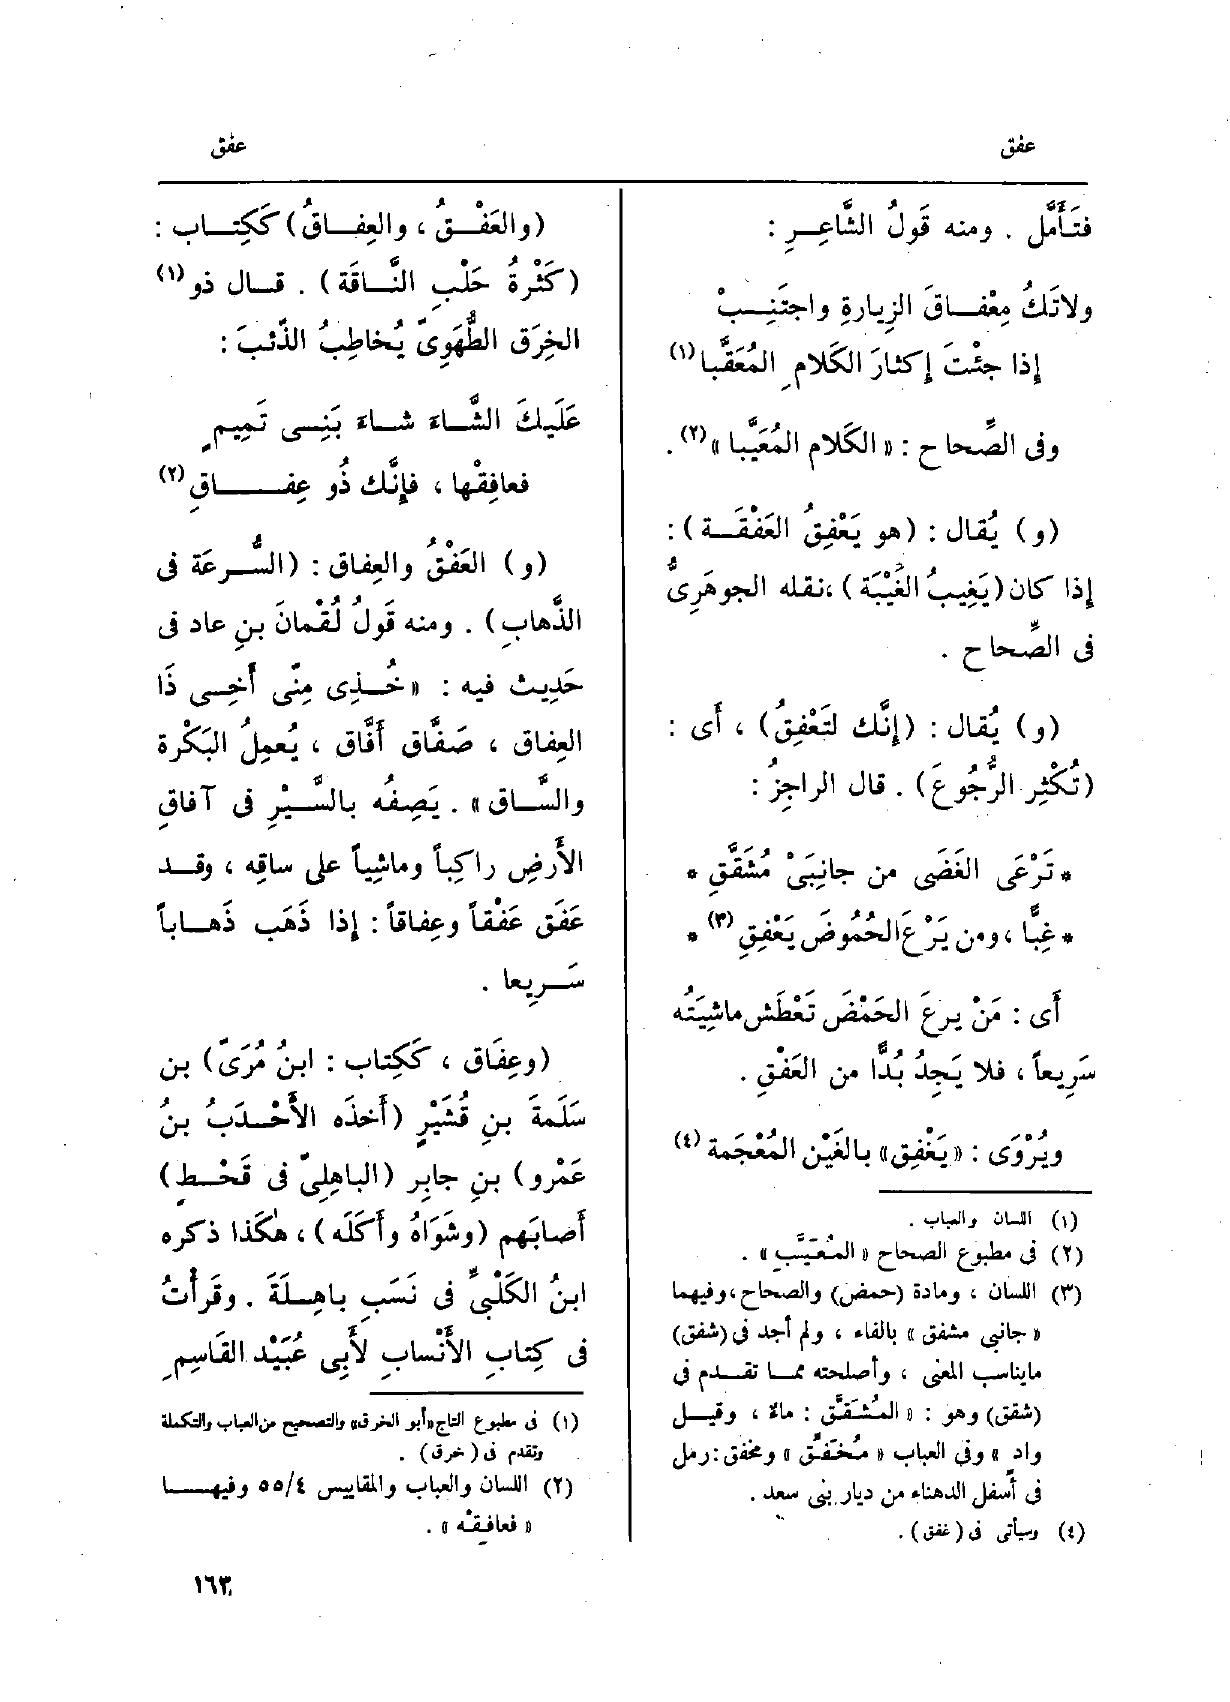 عفق
عفق
فتَأَمَّل . ومنه قَولُ الشَّاعِرِ :
ولاتَكُ مِعْفاقَ الزِيارةِ واجتَنِبْ
إذا جئْتَ إكثارَ الكَلامِ المُعَقَّبا (١)
وفى الصِّحاح : « الكَلام المُعَيَّبا » (٢) .
(و) يُقال : (هو يَعْفِقُ العَفْقَة) :
إذا كان (يَغِيبُ الغَيْبَة) ، نقله الجوهَرِىُّ
فى الصِّحاح .
(و) يُقال : (إِنَّك لتَعْفِقُ) ، أى :
(تُكْثِر الرُّجُوعَ) . قال الراجِزُ :
* تَرْعَى الغَضَى من جانِبَىْ مُشَقَّقِ *
* غِبًّا ، ومن يَرْعَ الحُمُوضَ يَعْفِقِ (٣) *
أى : مَنْ يرعَ الحَمْضَ تَعْطَش ماشِيَتُه
سَرِيعاً ، فلا يَجِدُ بُدًّا من العَفْقِ .
ويُرْوَى : « يَغْفِق » بالغَيْن المُعْجَمة (٤)
(١) اللسان والعباب .
(٢) فى مطبوع الصحاح « المُعَيَّبِ » .
(٣) اللسان ، ومادة (حمض) والصحاح ، وفيهما
« جانبى مشفق » بالفاء ، ولم أجد فى (شفق)
مايناسب المعنى ، وأصلحته مما تقدم فى
(شقق) وهو : « المُشَقَّق : ماء ، وقيل
واد » وفى العباب « مُخَفَّق » ومخفق : رمل
فى أسفل الدهناء من ديار بنى سعد .
(٤) وسيأتى فى (غفق) .
(والعَفْقُ ، والعِفاقُ) كَكِتاب :
(كَثْرةُ حَلْبِ النَّاقَة) . قال ذو (١)
الخِرَق الطُّهَوِىّ يُخاطِبُ الذِّئبَ :
عَلَيكَ الشَّاءَ شاءَ بَنِى تَمِيمٍ
فعافِقْها ، فإِنَّك ذُو عِفاقِ (٢)
(و) العَفْقُ والعِفاق : (السُّرعَة فى
الذَّهابِ) . ومنه قَولُ لُقْمانَ بنِ عاد فى
حَدِيث فيه : « خُذِى مِنِّى أَخِى ذَا
العِفاق ، صَفَّاق أَفَّاق ، يُعمِلُ البَكْرة
والسَّاق » . يَصِفُه بالسَّيْرِ فى آفاقِ
الأَرضِ راكِباً وماشِياً على ساقِه ، وقد
عَفَق عَفْقاً وعِفاقاً : إذا ذَهَب ذَهاباً
سَرِيعا .
(وعِفَاق ، كَكِتاب : ابنُ مُرَىّ) بن
سَلَمَةَ بنِ قُشَيْرٍ (أَخذَه الأَحْدَبُ بنُ
عَمْرو) بنِ جابِر (الباهِلِىّ فى قَحْطٍ)
أَصابَهم (وشَوَاهُ وأَكَلَه) ، هٰكذا ذكره
ابنُ الكَلْبِىِّ فى نَسَبِ باهِلَةَ . وقَرأْتُ
فى كِتابِ الأَنْسابِ لأَبى عُبَيْد القَاسِمِ
(١) فى مطبوع التاج « أبو الخرق » والتصحيح من العباب والتكملة
وتقدم فى (خرق) .
(٢) اللسان والعباب والمقاييس ٥٥/٤ وفيها
« فعافِقْه » .
١٦٣